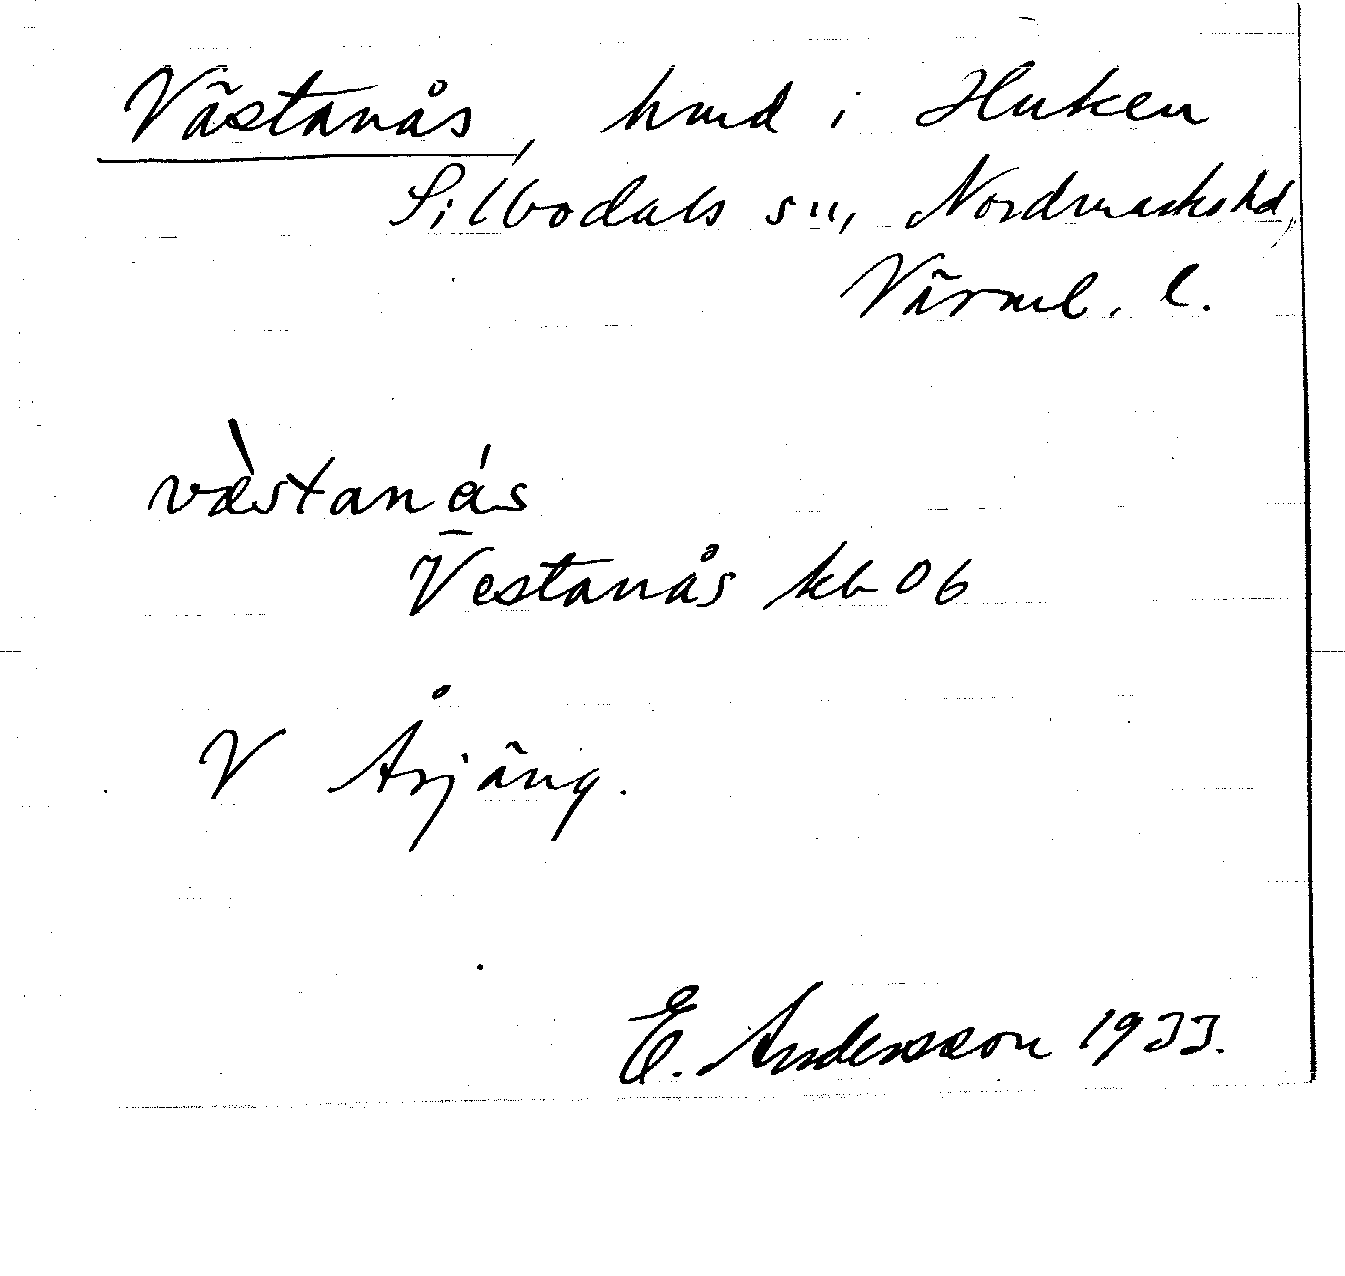 Västanås, hmd i Huken
Silbodals sn, Nordmarks hd,
Värml. l.
væ̀stanás
Vestanås kb 06
V Årjäng.
E. Andersson 1933.